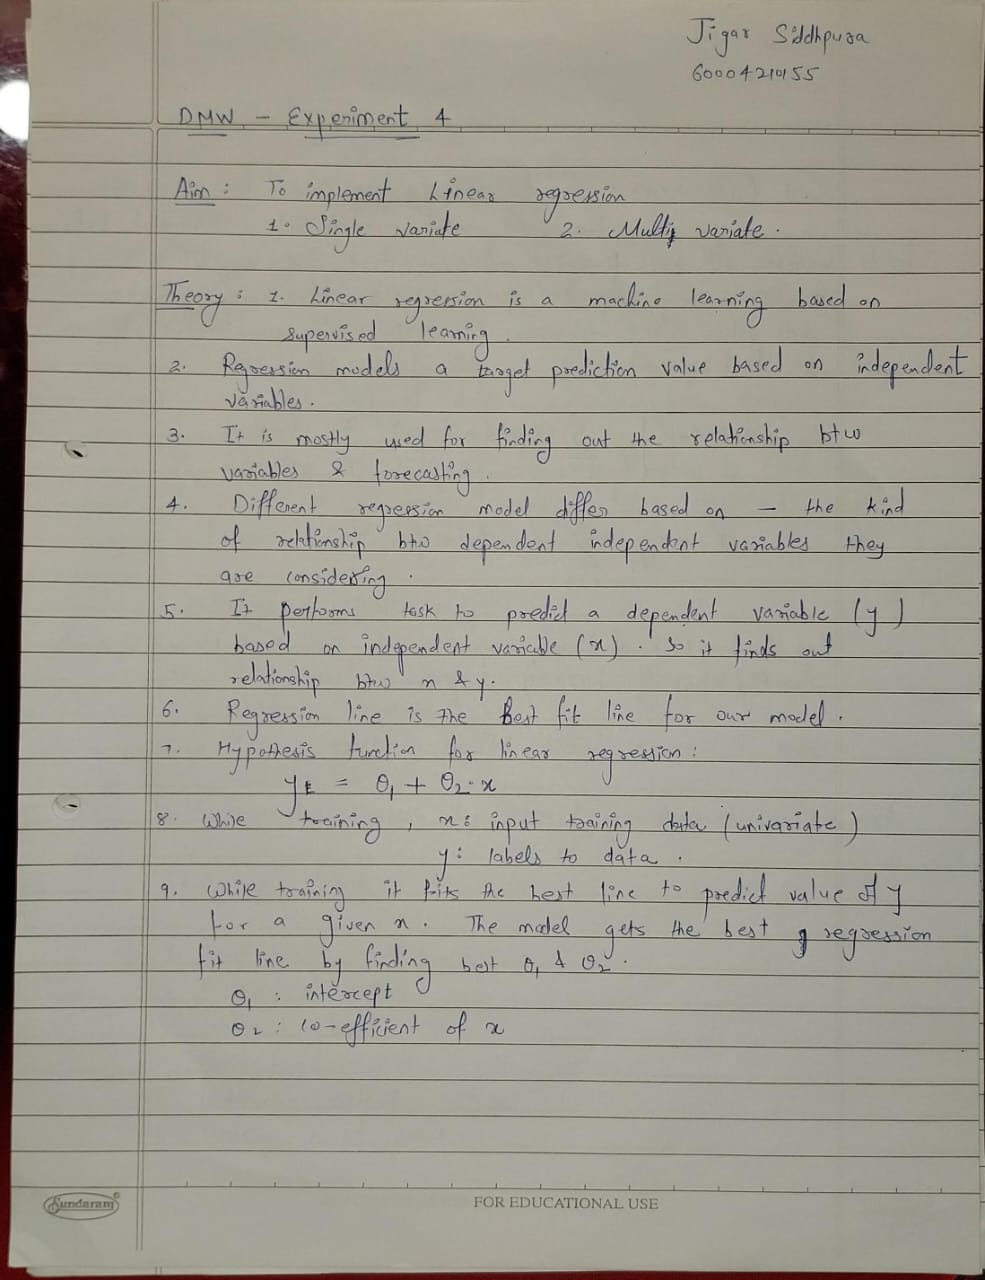 Jigar Siddhpura
60004210155
DMW - Experiment 4
Aim : To implement Linear regression
1. Single variate 2. Multi variate .
Theory : 1. Linear regression is a machine learning based on
supervised learning .
2. Regression models a target prediction value based on independent
variables .
3. It is mostly used for finding out the relationship btw
variables & forecasting .
4. Different regression model differ based on - the kind
of relationship btw dependent independent variables they
are considering .
5. It performs task to predict a dependent variable (y)
based on independent variable (x) . So it finds out
relationship btw x & y.
6. Regression line is the best fit line for our model .
7. Hypothesis function for linear regression :
y = θ1 + θ2.x
8. While training , x : input training data (univariate)
y : labels to data .
9. While training it fits the best line to predict value of y
for a given x . The model gets the best regression
fit line by finding best θ1 & θ2 .
θ1 : intercept
θ2 : co-efficient of x
Sundaram®
FOR EDUCATIONAL USE